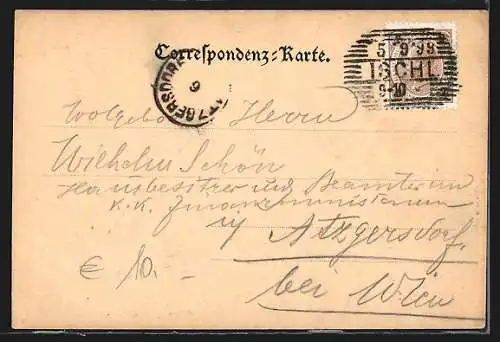 Correspondenz-Karte.
5 9 98
ISCHL
9-10
ATZGERSDORF
9
Wolgeb Herrn
Wilhelm Schön
Hausbesitzer und Beamter im
K. K. Finanzministerium
in Atzgersdorf
bei Wien
€ 10.-